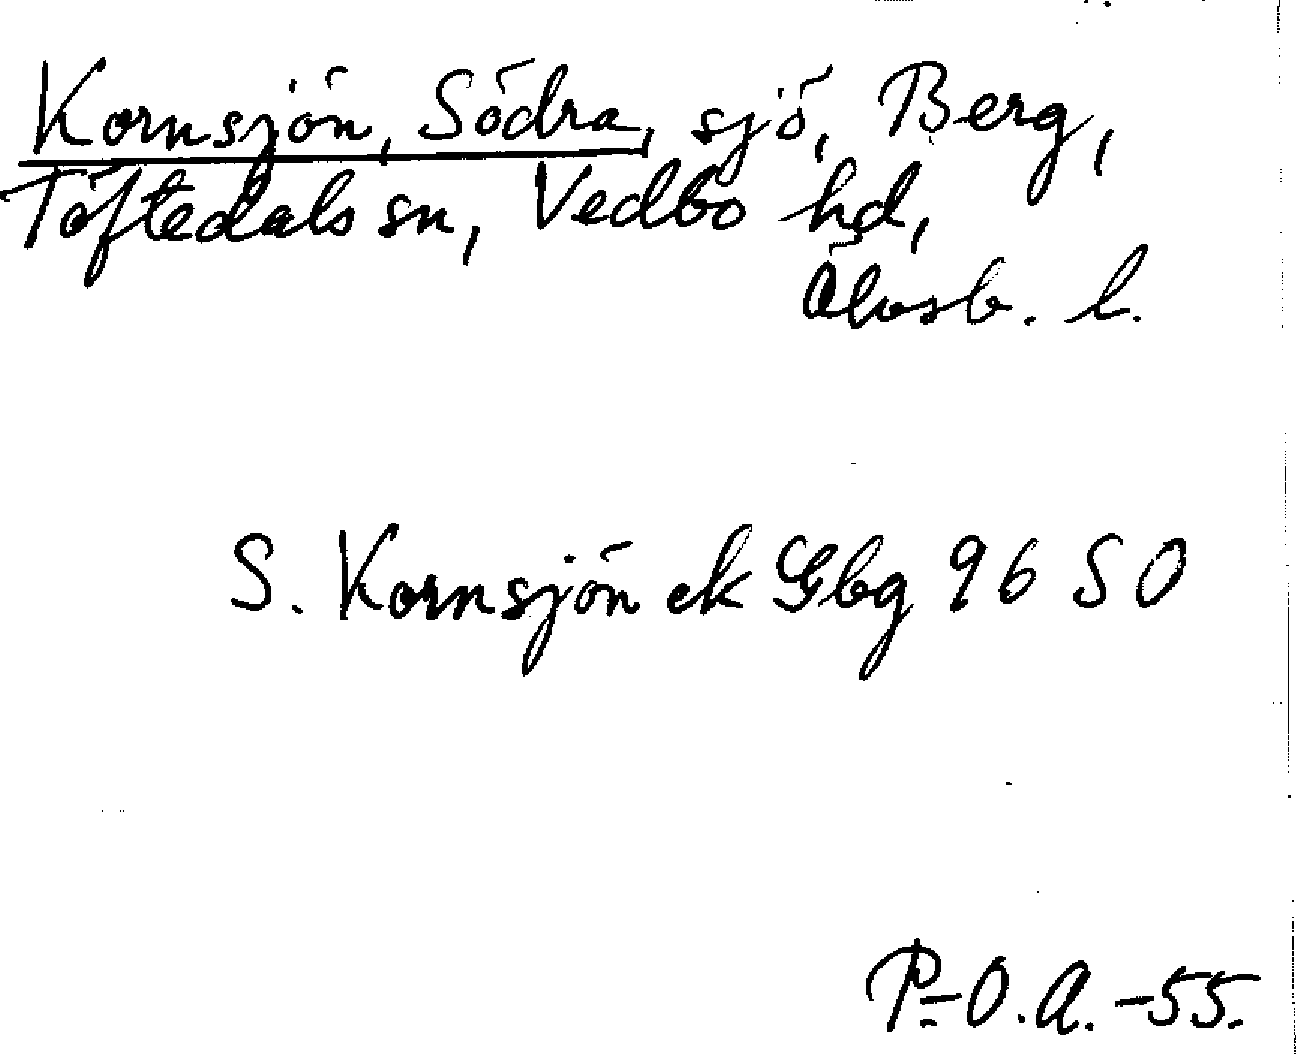 Kornsjön, Södra, sjö, Berg,
Töftedals sn, Vedbo hd,
Älvsb. l.
S. Kornsjön ek Gbg 96 SO
P-O.A.-55.